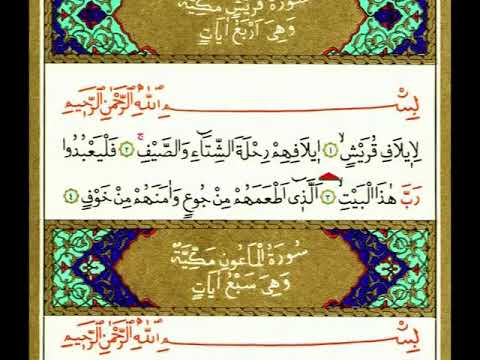 سُورَةُ قُرَيْشٍ مَكِّيَّةٌ
وَهِيَ اَرْبَعُ اٰيَاتٍ
بِسْمِ اللّٰهِ الرَّحْمٰنِ الرَّحٖيمِ
لِاٖيلَافِ قُرَيْشٍۙ ﴿١﴾ اٖيلَافِهِمْ رِحْلَةَ الشِّتَٓاءِ وَالصَّيْفِۚ ﴿٢﴾ فَلْيَعْبُدُوا
رَبَّ هٰذَا الْبَيْتِۙ ﴿٣﴾ اَلَّذٖٓى اَطْعَمَهُمْ مِنْ جُوعٍ وَاٰمَنَهُمْ مِنْ خَوْفٍ ﴿٤﴾
سُورَةُ الْمَاعُونِ مَكِّيَّةٌ
وَهِيَ سَبْعُ اٰيَاتٍ
بِسْمِ اللّٰهِ الرَّحْمٰنِ الرَّحٖيمِ